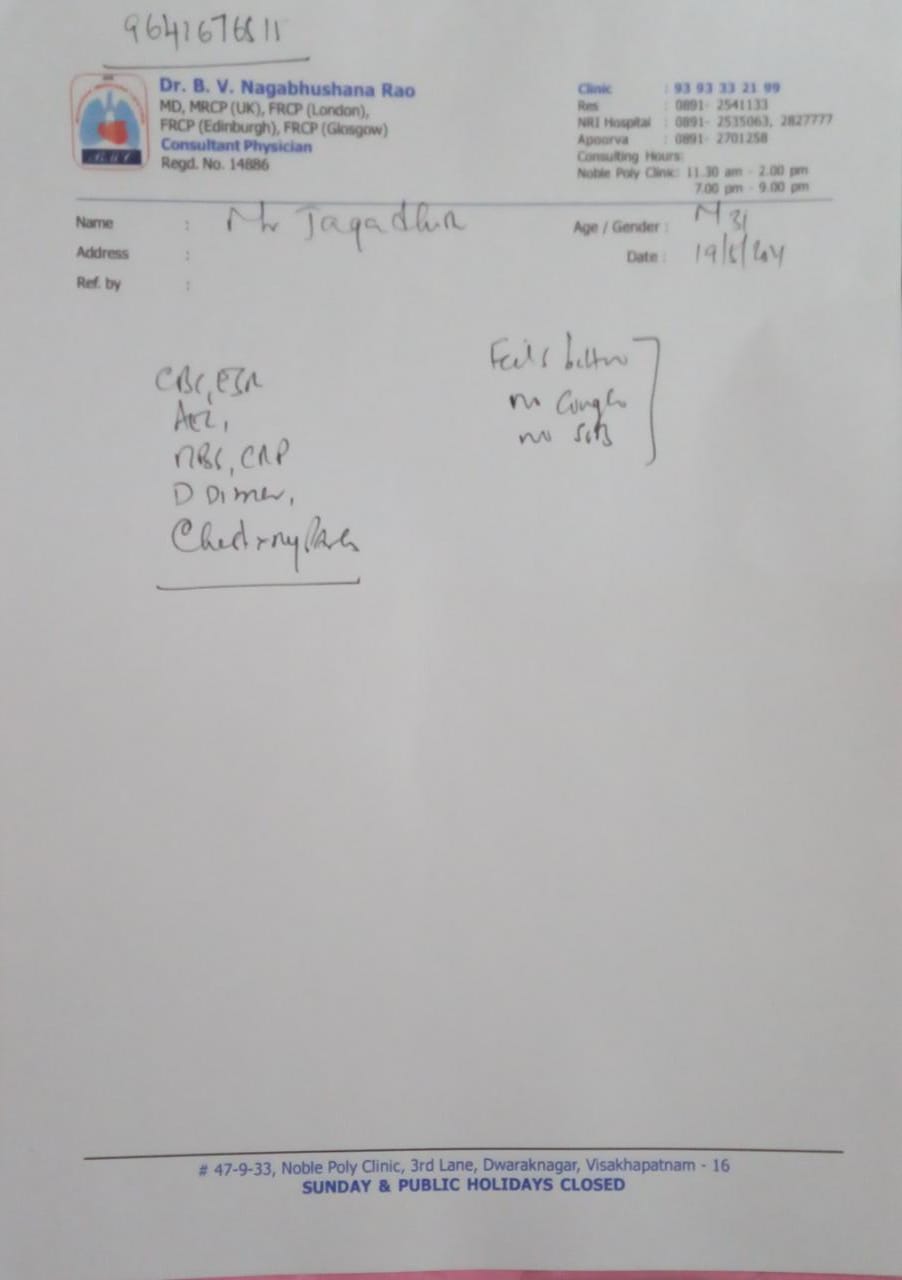 9641676811
Dr. B. V. Nagabhushana Rao
MD, MRCP (UK), FRCP (London),
FRCP (Edinburgh), FRCP (Glasgow)
Consultant Physician
Regd. No. 14886
Clinic : 93 93 33 21 99
Res : 0891- 2541133
NRI Hospital : 0891- 2535063, 2827777
Apoorva : 0891- 2701258
Consulting Hours:
Noble Poly Clinic: 11.30 am - 2.00 pm
7.00 pm - 9.00 pm
Name : Mr
Age / Gender : M 31
Address :
Date :
Ref. by :
CBC, ESR
CRP
D Dimer,
Chest xray
Feels better
no Cough
no SOB
# 47-9-33, Noble Poly Clinic, 3rd Lane, Dwaraknagar, Visakhapatnam - 16
SUNDAY & PUBLIC HOLIDAYS CLOSED